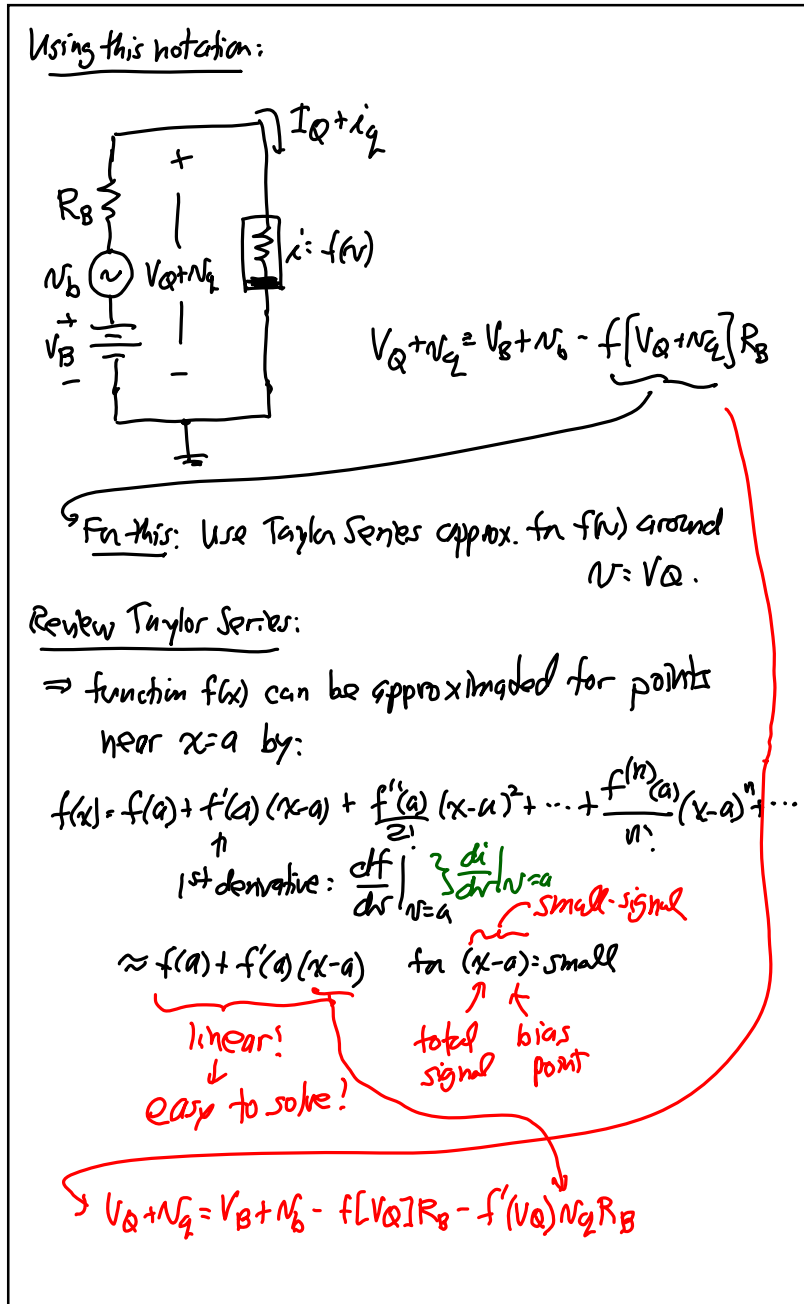 Using this notation:
I_Q + i_q
+
R_B
v_b
V_Q + v_q
i = f(v)
+
V_B
−
−
V_Q + v_q = V_B + v_b - f[V_Q + v_q] R_B
For this: Use Taylor Series approx. for f(v) around
v = V_Q.
Review Taylor Series:
⇒ function f(x) can be approximated for points
near x=a by:
f(x) = f(a) + f'(a) (x-a) + f''(a)/2! (x-a)^2 + ··· + f^(n)(a)/n! (x-a)^n + ···
1st derivative: df/dv |_v=a } di/dv |_v=a
small-signal
≈ f(a) + f'(a) (x-a) for (x-a) = small
linear!
total bias
signal point
easy to solve!
V_Q + v_q = V_B + v_b - f[V_Q] R_B - f'(V_Q) v_q R_B